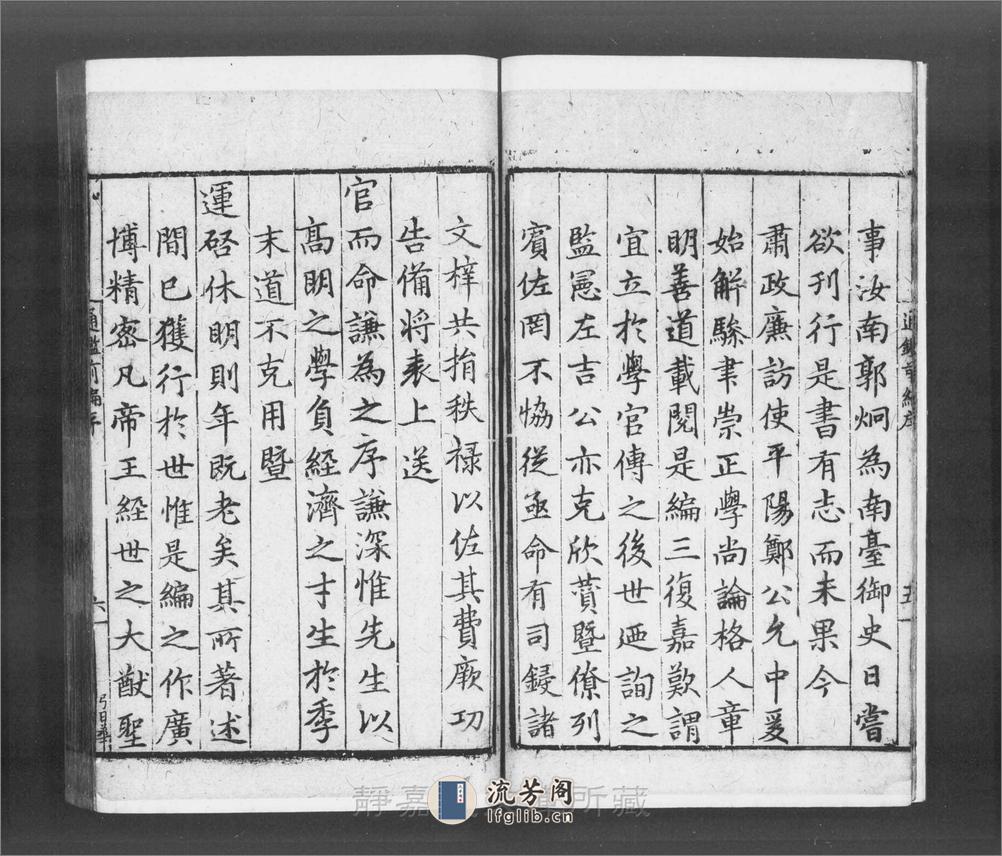 事汝南郭炯為南臺御史日嘗
欲刊行是書有志而未果今
肅政廉訪使平陽鄭公允中爰
始解驂聿崇正學尚論格人章
明善道載閱是編三復嘉歎謂
宜立於學官傳之後世廼詢之
監憲左吉公亦克欣賛暨僚列
賓佐罔不恊從亟命有司鋟諸
通鑑前編序
五
文梓共捐秩禄以佐其費厥功
告備將表上送
官而命謙為之序謙深惟先生以
髙明之學負經濟之才生於季
末道不克用暨
運啓休明則年既老矣其所著述
間已獲行於世惟是編之作廣
博精密凡帝王經世之大猷聖
通鑑前編序
六
静嘉堂文庫所藏
流芳阁
lfglib.cn